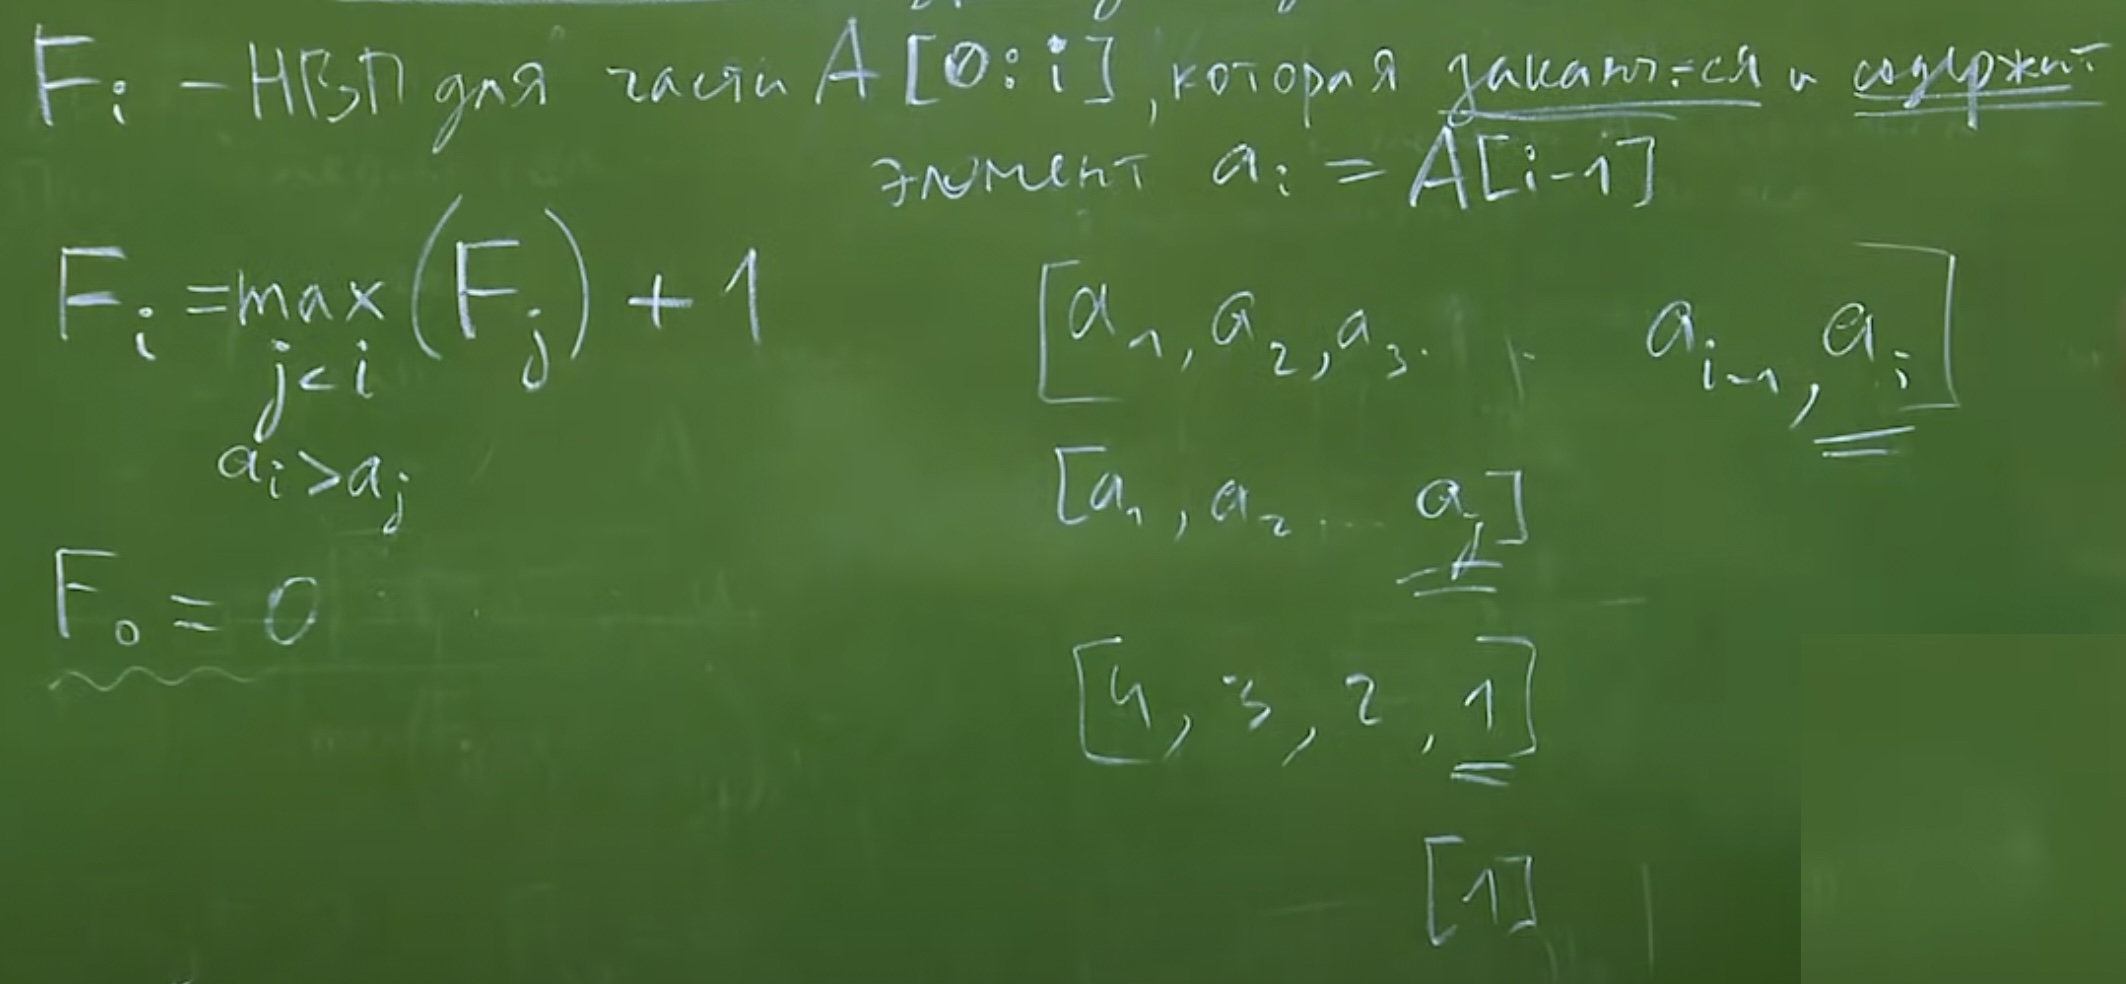 Fᵢ - НВП для части A[0:i], которая заканч-ся и содержит
элемент aᵢ = A[i-1]
Fᵢ = max (Fⱼ) + 1
j<i
aᵢ > aⱼ
F₀ = 0
[a₁, a₂, a₃ . . . aᵢ₋₁, aᵢ]
[a₁, a₂ ... aⱼ]
[4, 3, 2, 1]
[1]